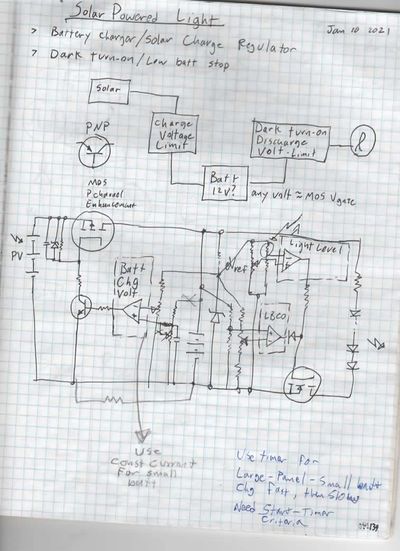 Solar Powered Light
Jan 10 2021
> Battery charger/Solar Charge Regulator
> Dark turn-on/Low batt stop
Solar
Charge
Voltage
Limit
Dark turn-on
Discharge
Volt Limit
PNP
Batt
12V?
any volt ≈ MOS Vgate
MOS
P channel
Enhancement
PV
Batt
Chg
Volt
Vref
Light Level
LBCO
Use
Const Current
For small
batt
Use timer for
Large-Panel-Small batt
Chg Fast, then Slow
Need Start-Timer
Criteria